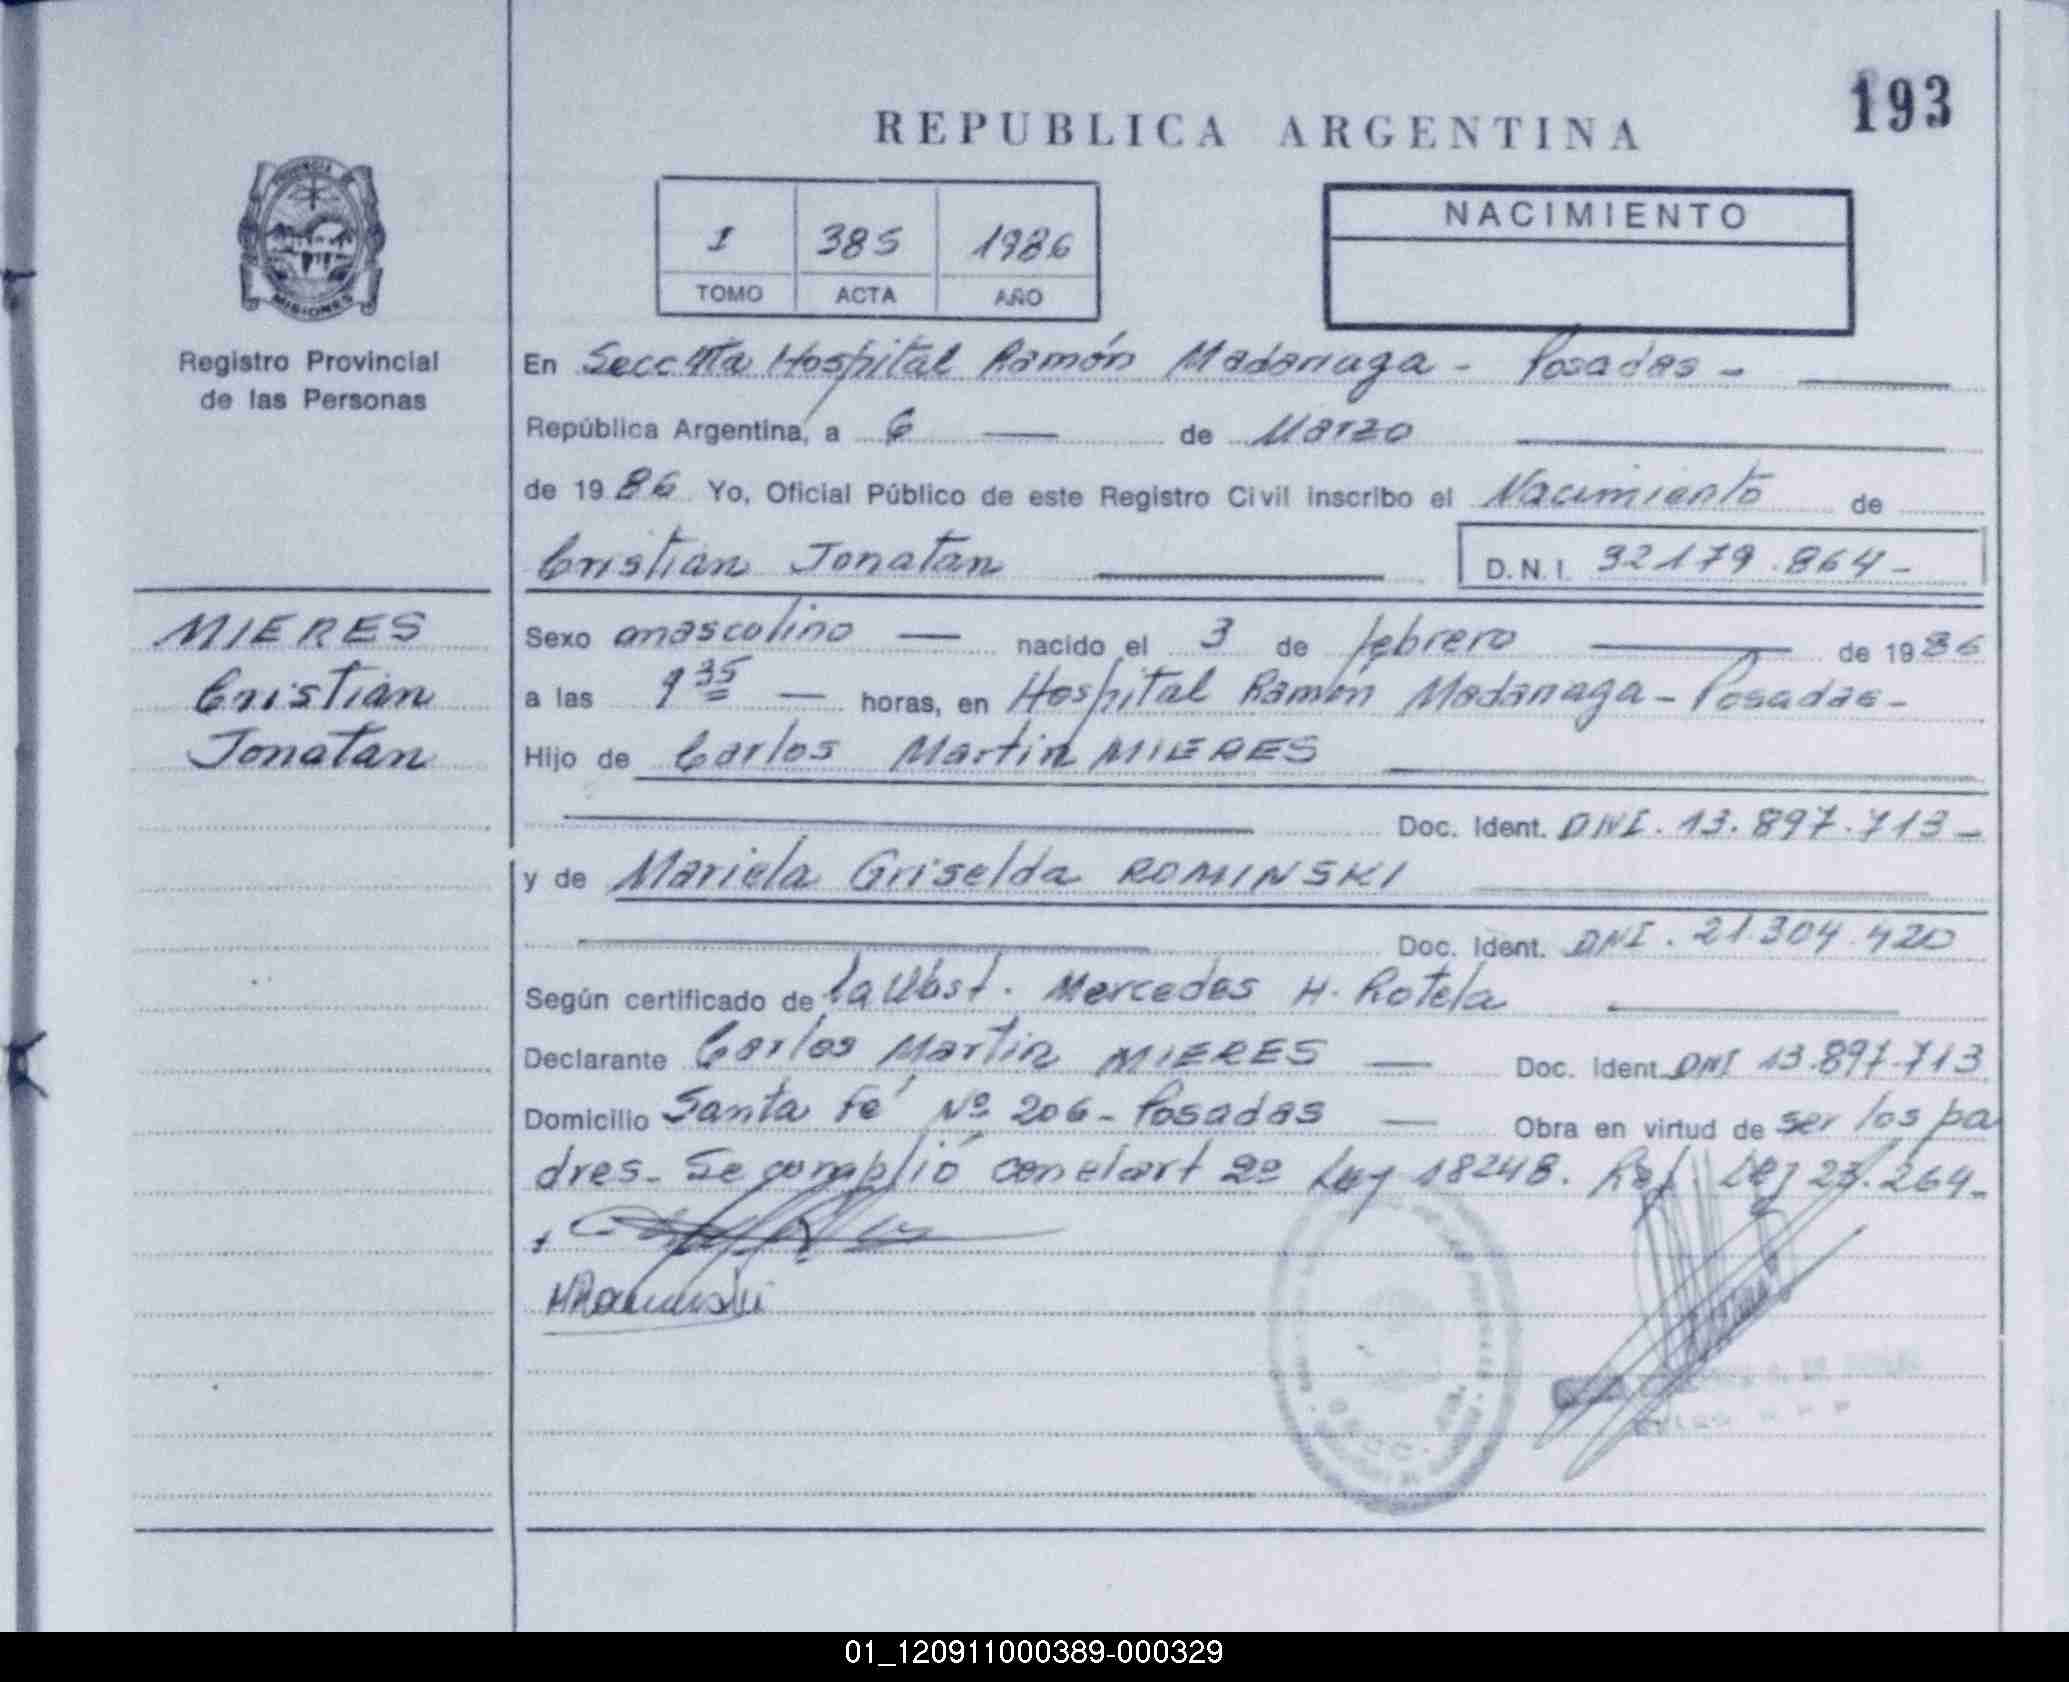 193
REPUBLICA ARGENTINA
PROVINCIA DE
MISIONES
Registro Provincial
de las Personas
I 385 1986
TOMO ACTA AÑO
NACIMIENTO
En Secc 4ta Hospital Ramón Madariaga - Posadas -
República Argentina, a 6 de Marzo
de 1986 Yo, Oficial Público de este Registro Civil inscribo el Nacimiento de
Cristian Jonatan D.N.I. 32179.864-
MIERES
Cristian
Jonatan
Sexo masculino nacido el 3 de febrero de 1986
a las 9 35 horas, en Hospital Ramón Madariaga - Posadas -
Hijo de Carlos Martin MIERES
Doc. Ident. DNI. 13.897.713-
y de Mariela Griselda ROMINSKI
Doc. Ident. DNI. 21.304.420
Según certificado de la Obst. Mercedes H. Rotela
Declarante Carlos Martin MIERES Doc. Ident. DNI 13.897.713
Domicilio Santa Fé Nº 206 - Posadas Obra en virtud de ser los pa
dres. Se cumplió con el art 2º Ley 18248. Ref. Ley 23.264.
01_120911000389-000329